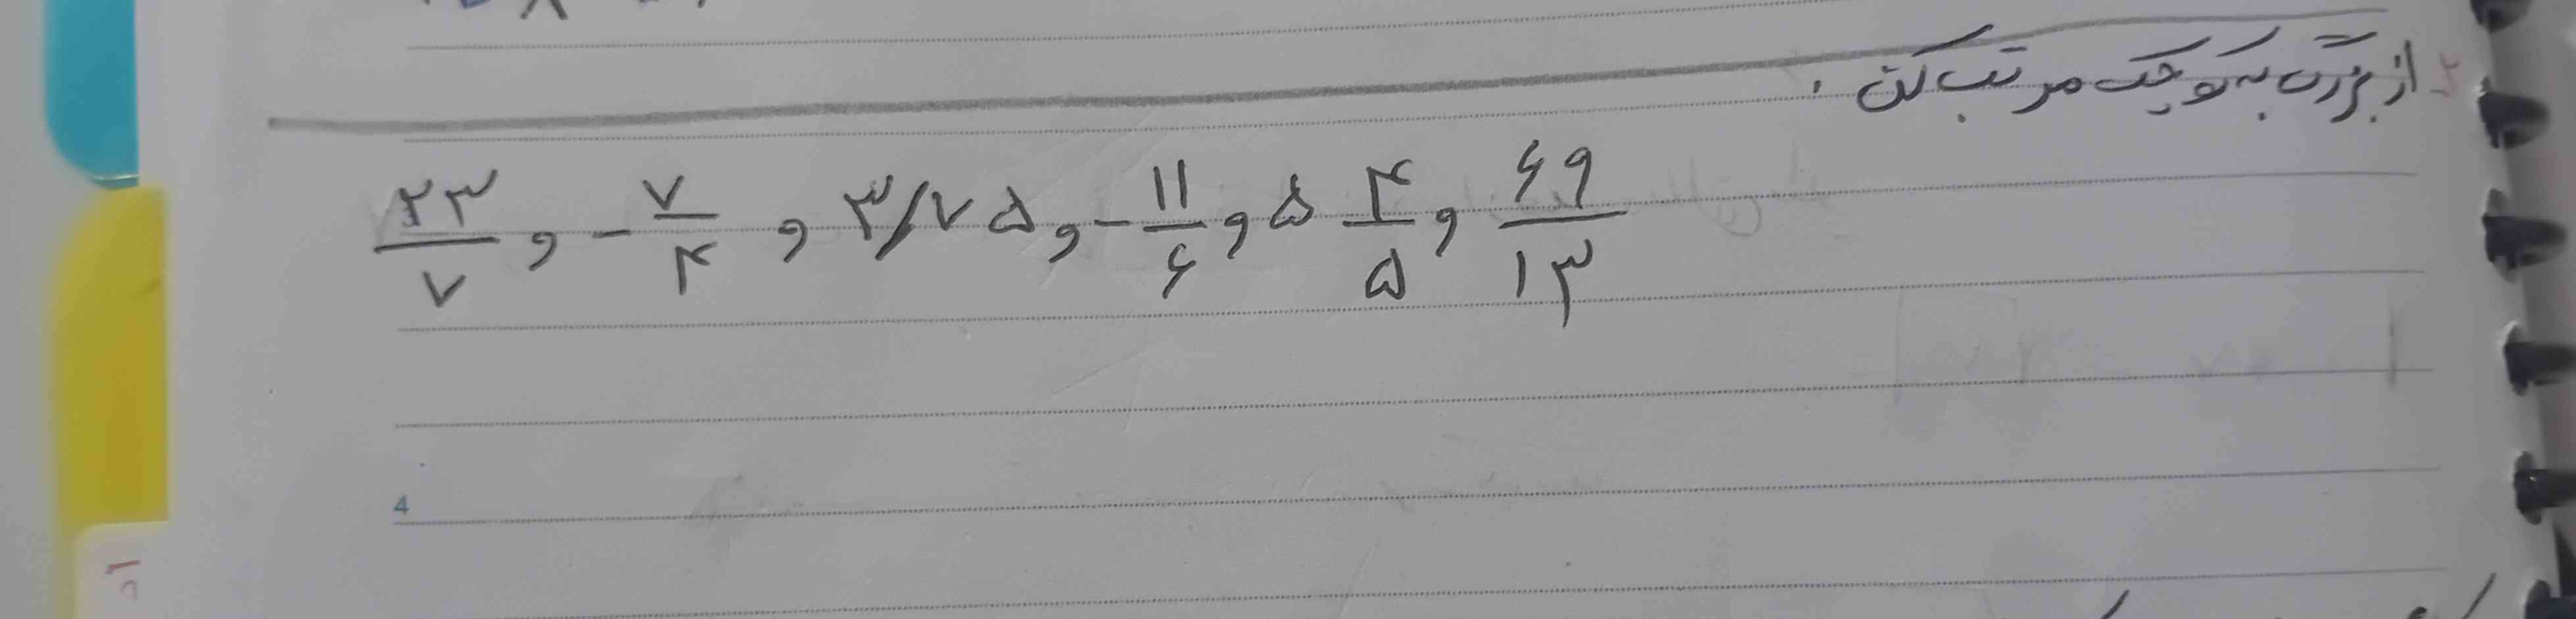 ۲- از بزرگ به کوچک مرتب کن.
۲۳/۷ و -۷/۴ و ۳/۷۵ و -۱۱/۶ و ۵ ۴/۵ و ۶۹/۱۳
4